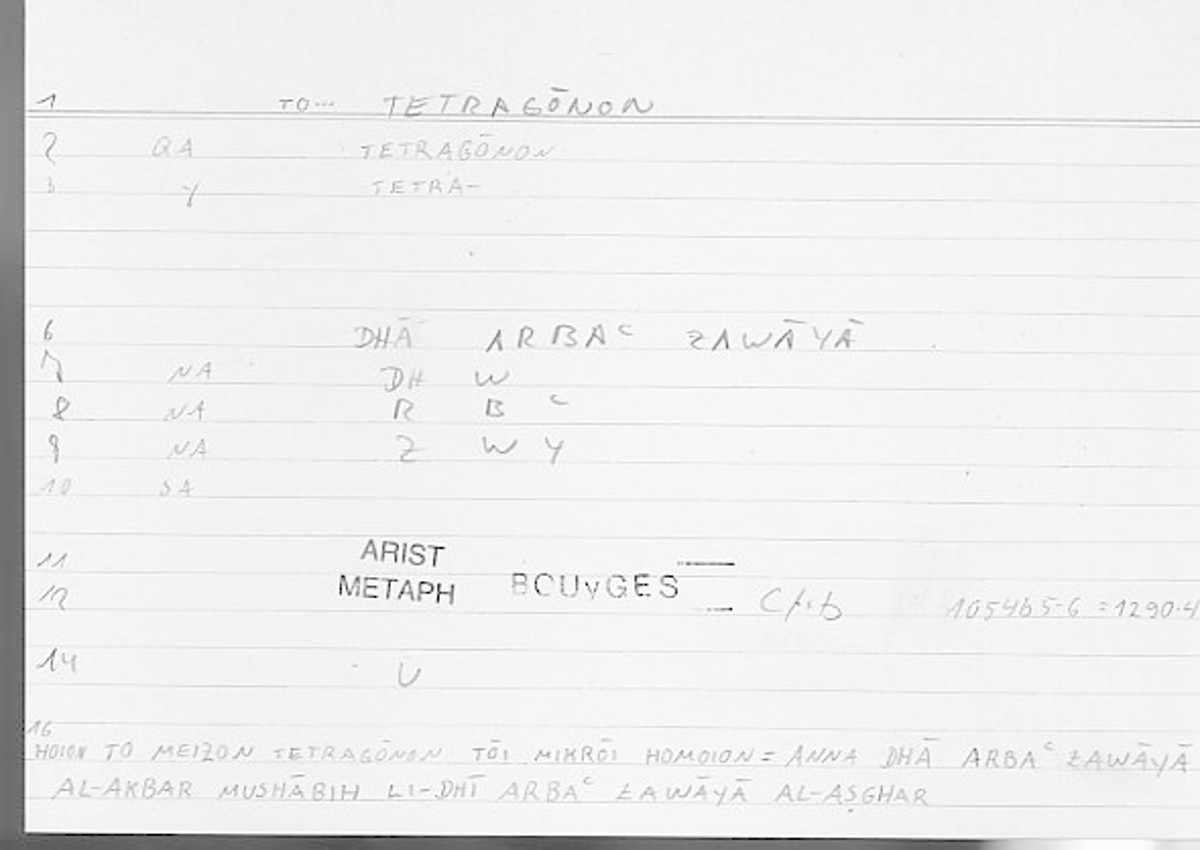 1 TO... TETRAGŌNON
2 QA TETRAGŌNON
3 Y TETRA-
6 DHĀ ARBAᶜ ZAWĀYĀ
7 NA DH W
8 NA R B ᶜ
9 NA Z W Y
10 SA
11 ARIST
12 METAPH BOUyGES 1054b5-6 = 1290.4
14 U
16
HOION TO MEIZON TETRAGŌNON TŌI MIKRŌI HOMOION = ANNA DHĀ ARBAᶜ ZAWĀYĀ
AL-AKBAR MUSHĀBIH LI-DHĪ ARBAᶜ ZAWĀYĀ AL-AṢGHAR